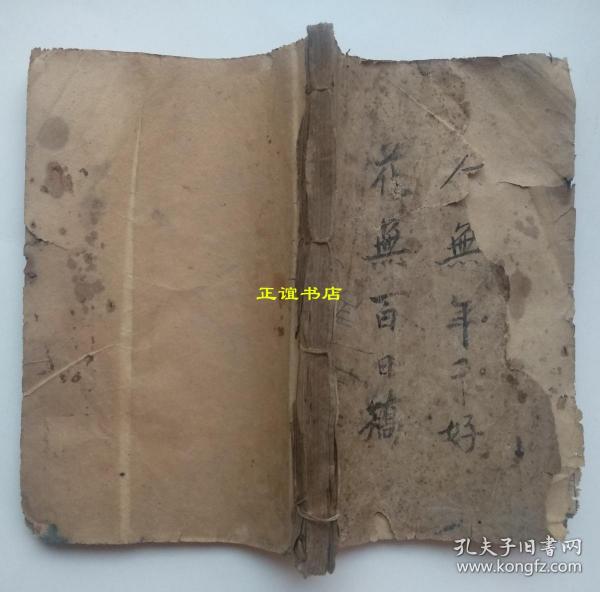 人無年千好
花無百日
正谊书店
孔夫子旧书网
www.kongfz.com